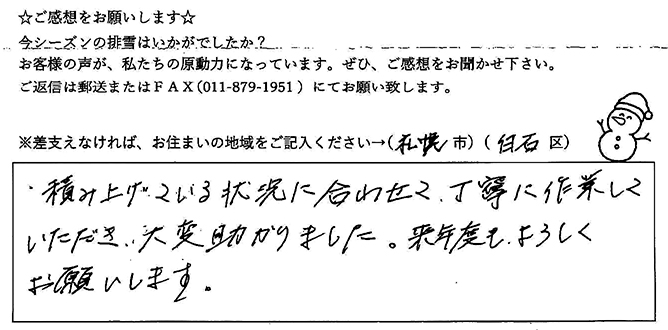 ☆ご感想をお願いします☆
今シーズンの排雪はいかがでしたか？
お客様の声が、私たちの原動力になっています。ぜひ、ご感想をお聞かせ下さい。
ご返信は郵送またはＦＡＸ(011-879-1951）にてお願い致します。
※差支えなければ、お住まいの地域をご記入ください→(札幌市）(白石区）
・積み上げている状況に合わせて、丁寧に作業して
いただき、大変助かりました。来年度も、よろしく
お願いします。